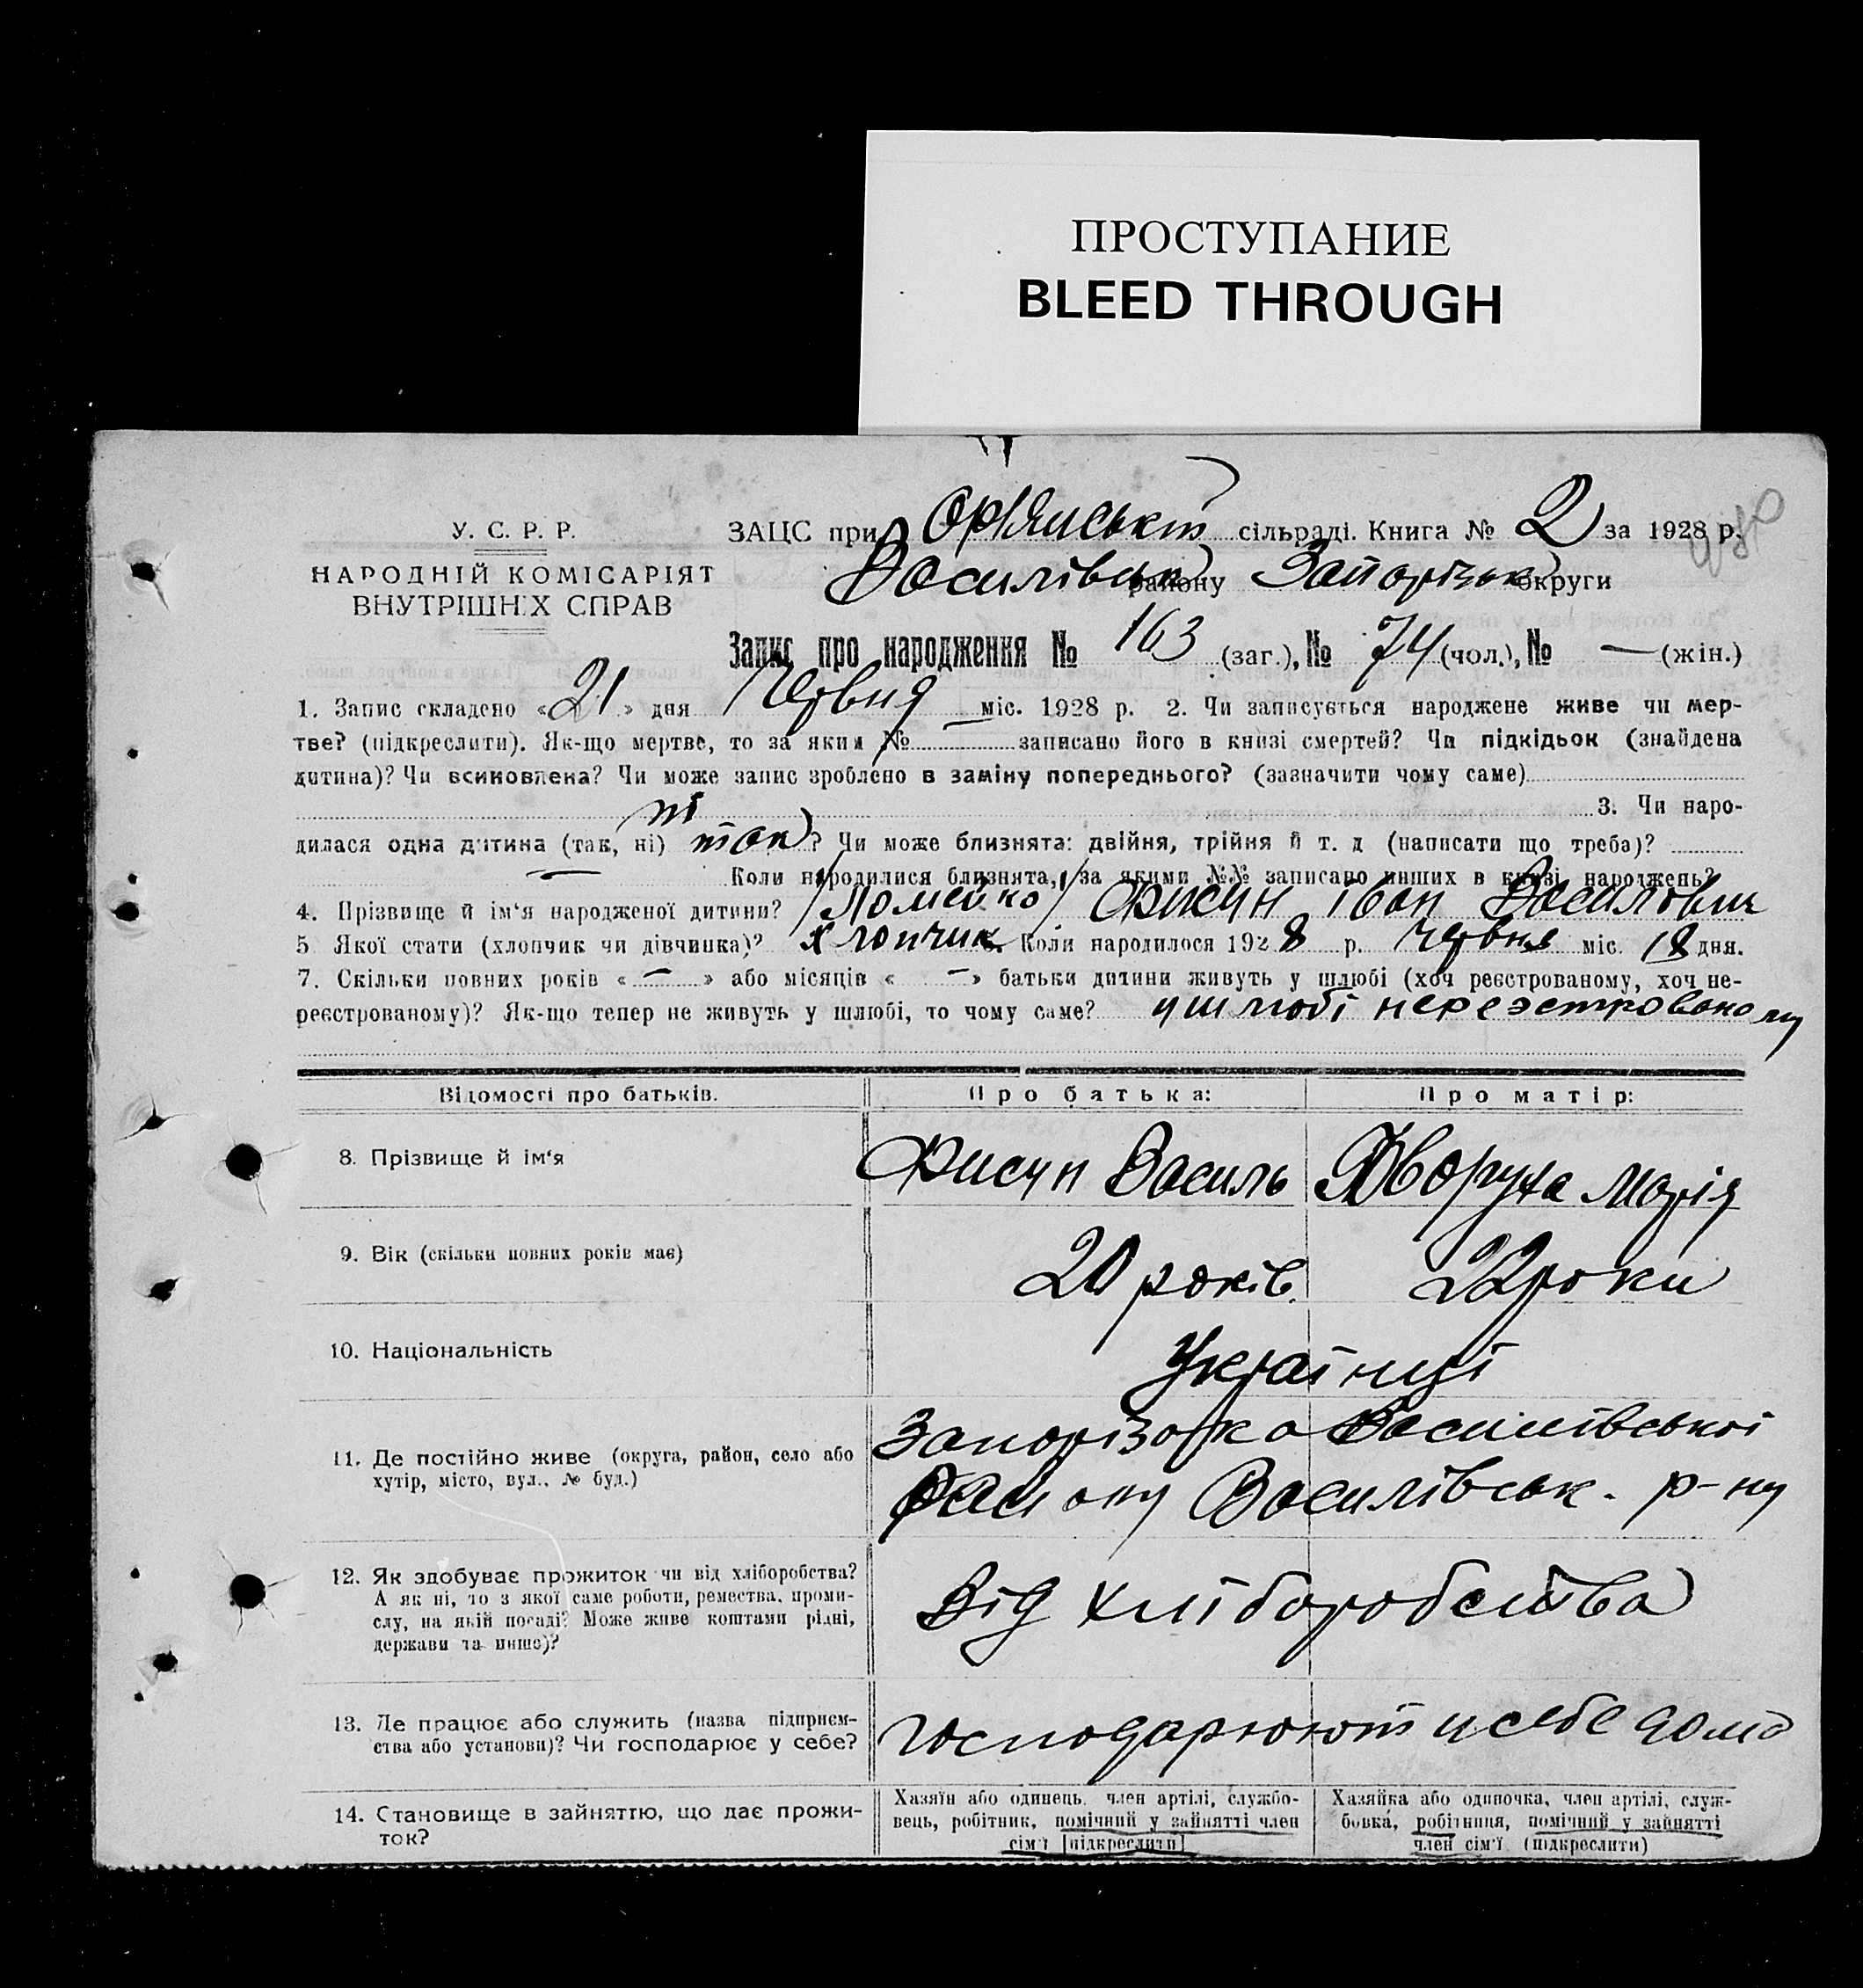 ПРОСТУПАНИЕ
BLEED THROUGH
У. С. Р. Р.
НАРОДНІЙ КОМІСАРІЯТ
ВНУТРІШНІХ СПРАВ
ЗАЦС при сільраді. Книга № 2 за 1928 р.
Василівськ району Запорізьк округи
Запис про народження № 163 (заг.), № 74 (чол.), № — (жін.)
1. Запис складено «21» дня Червня міс. 1928 р. 2. Чи записується народжене живе чи мер-
тве? (підкреслити). Як-що мертве, то за яким № записано його в книзі смертей? Чи підкідьок (знайдена
дитина)? Чи всиновлена? Чи може запис зроблено в заміну попереднього? (зазначити чому саме)
ні 3. Чи наро-
дилася одна дитина (так, ні) так? Чи може близнята: двійня, трійня й т. д (написати що треба)?
— Коли народилися близнята, за якими №№ записано инших в книзі народжень?
4. Прізвище й ім'я народженої дитини? Фисун Іван Василович
5 Якої стати (хлопчик чи дівчинка)? хлопчик. Коли народилося 1928 р. червня міс. 18 дня.
7. Скільки повних років «—» або місяців «—» батьки дитини живуть у шлюбі (хоч реєстрованому, хоч не-
реєстрованому)? Як-що тепер не живуть у шлюбі, то чому саме? у шлюбі нереэстровоному
Відомості про батьків. Про батька: Про матір:
8. Прізвище й ім'я Фисун Василь Марія
9. Вік (скільки повних років має) 20 років. 22 роки
10. Національність Українці
11. Де постійно живе (округа, район, село або
хутір, місто, вул., № буд.) Василівськ. р-ну
12. Як здобуває прожиток чи від хліборобства?
А як ні, то з якої саме роботи, ремества, проми-
слу, на якій посаді? Може живе коштами рідні,
держави та инше)? Від хліборобства
13. Де працює або служить (назва підприєм-
ства або установи)? Чи господарює у себе? господарюють у себе дома
14. Становище в зайняттю, що дає прожи-
ток?
Хазяїн або одинець, член артілі, службо-
вець, робітник, помічний у зайнятті член
сім'ї (підкреслити)
Хазяйка або одиночка, член артілі, служ-
бовка, робітниця, помічний у зайнятті
член сім'ї (підкреслити)